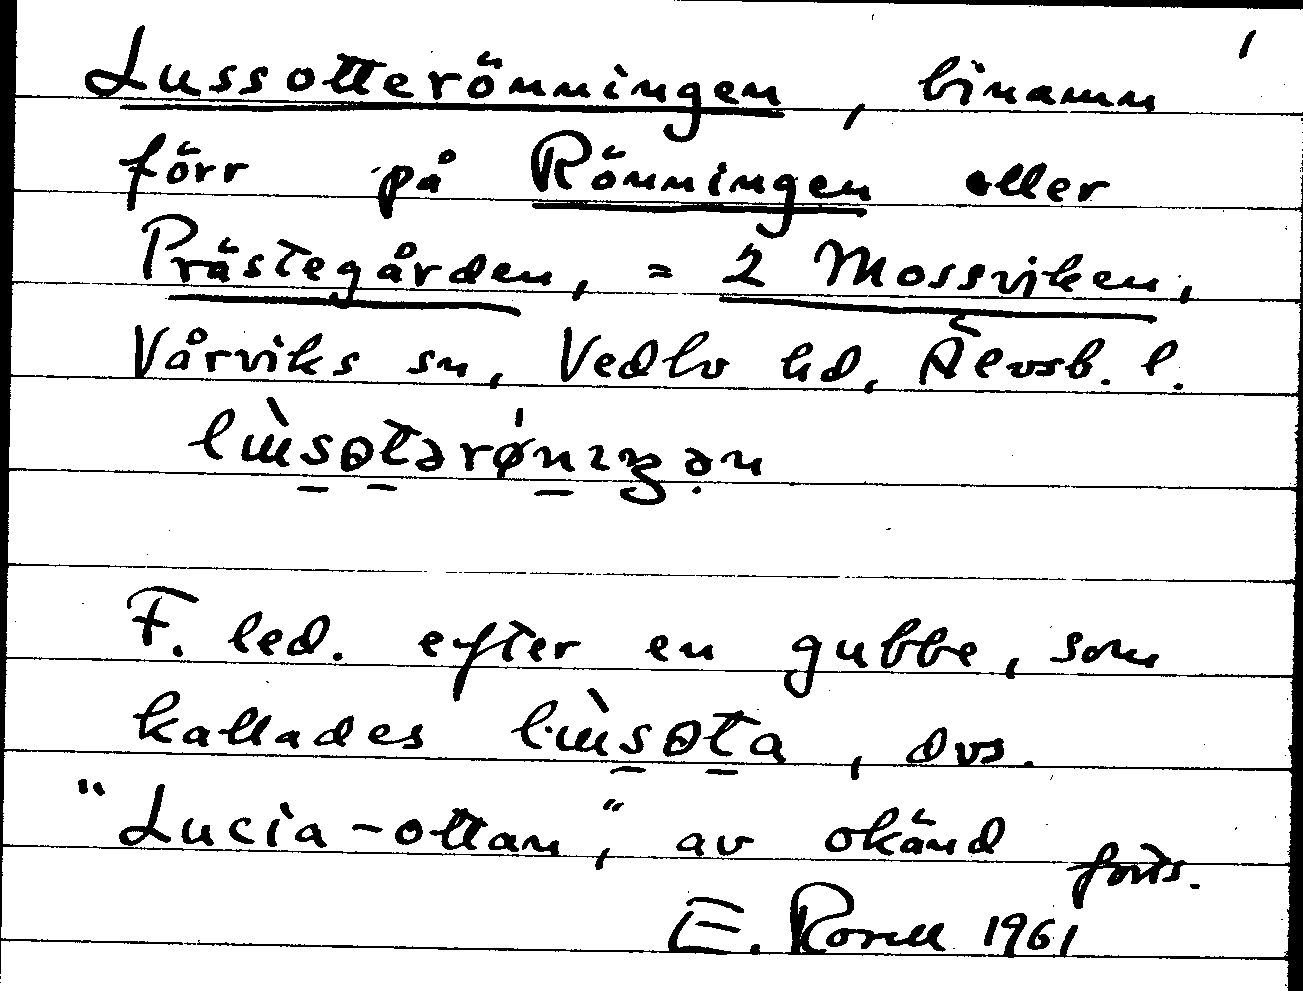 1
Lussotterönningen, binamn
förr på Rönningen eller
Prästegården, = 2 Mossviken,
Vårviks sn, Vedbo hd, Älvsb. l.
F. led. efter en gubbe, som
kallades , dvs.
"Lucia-ottan," av okänd
forts.
E. Rorell 1961